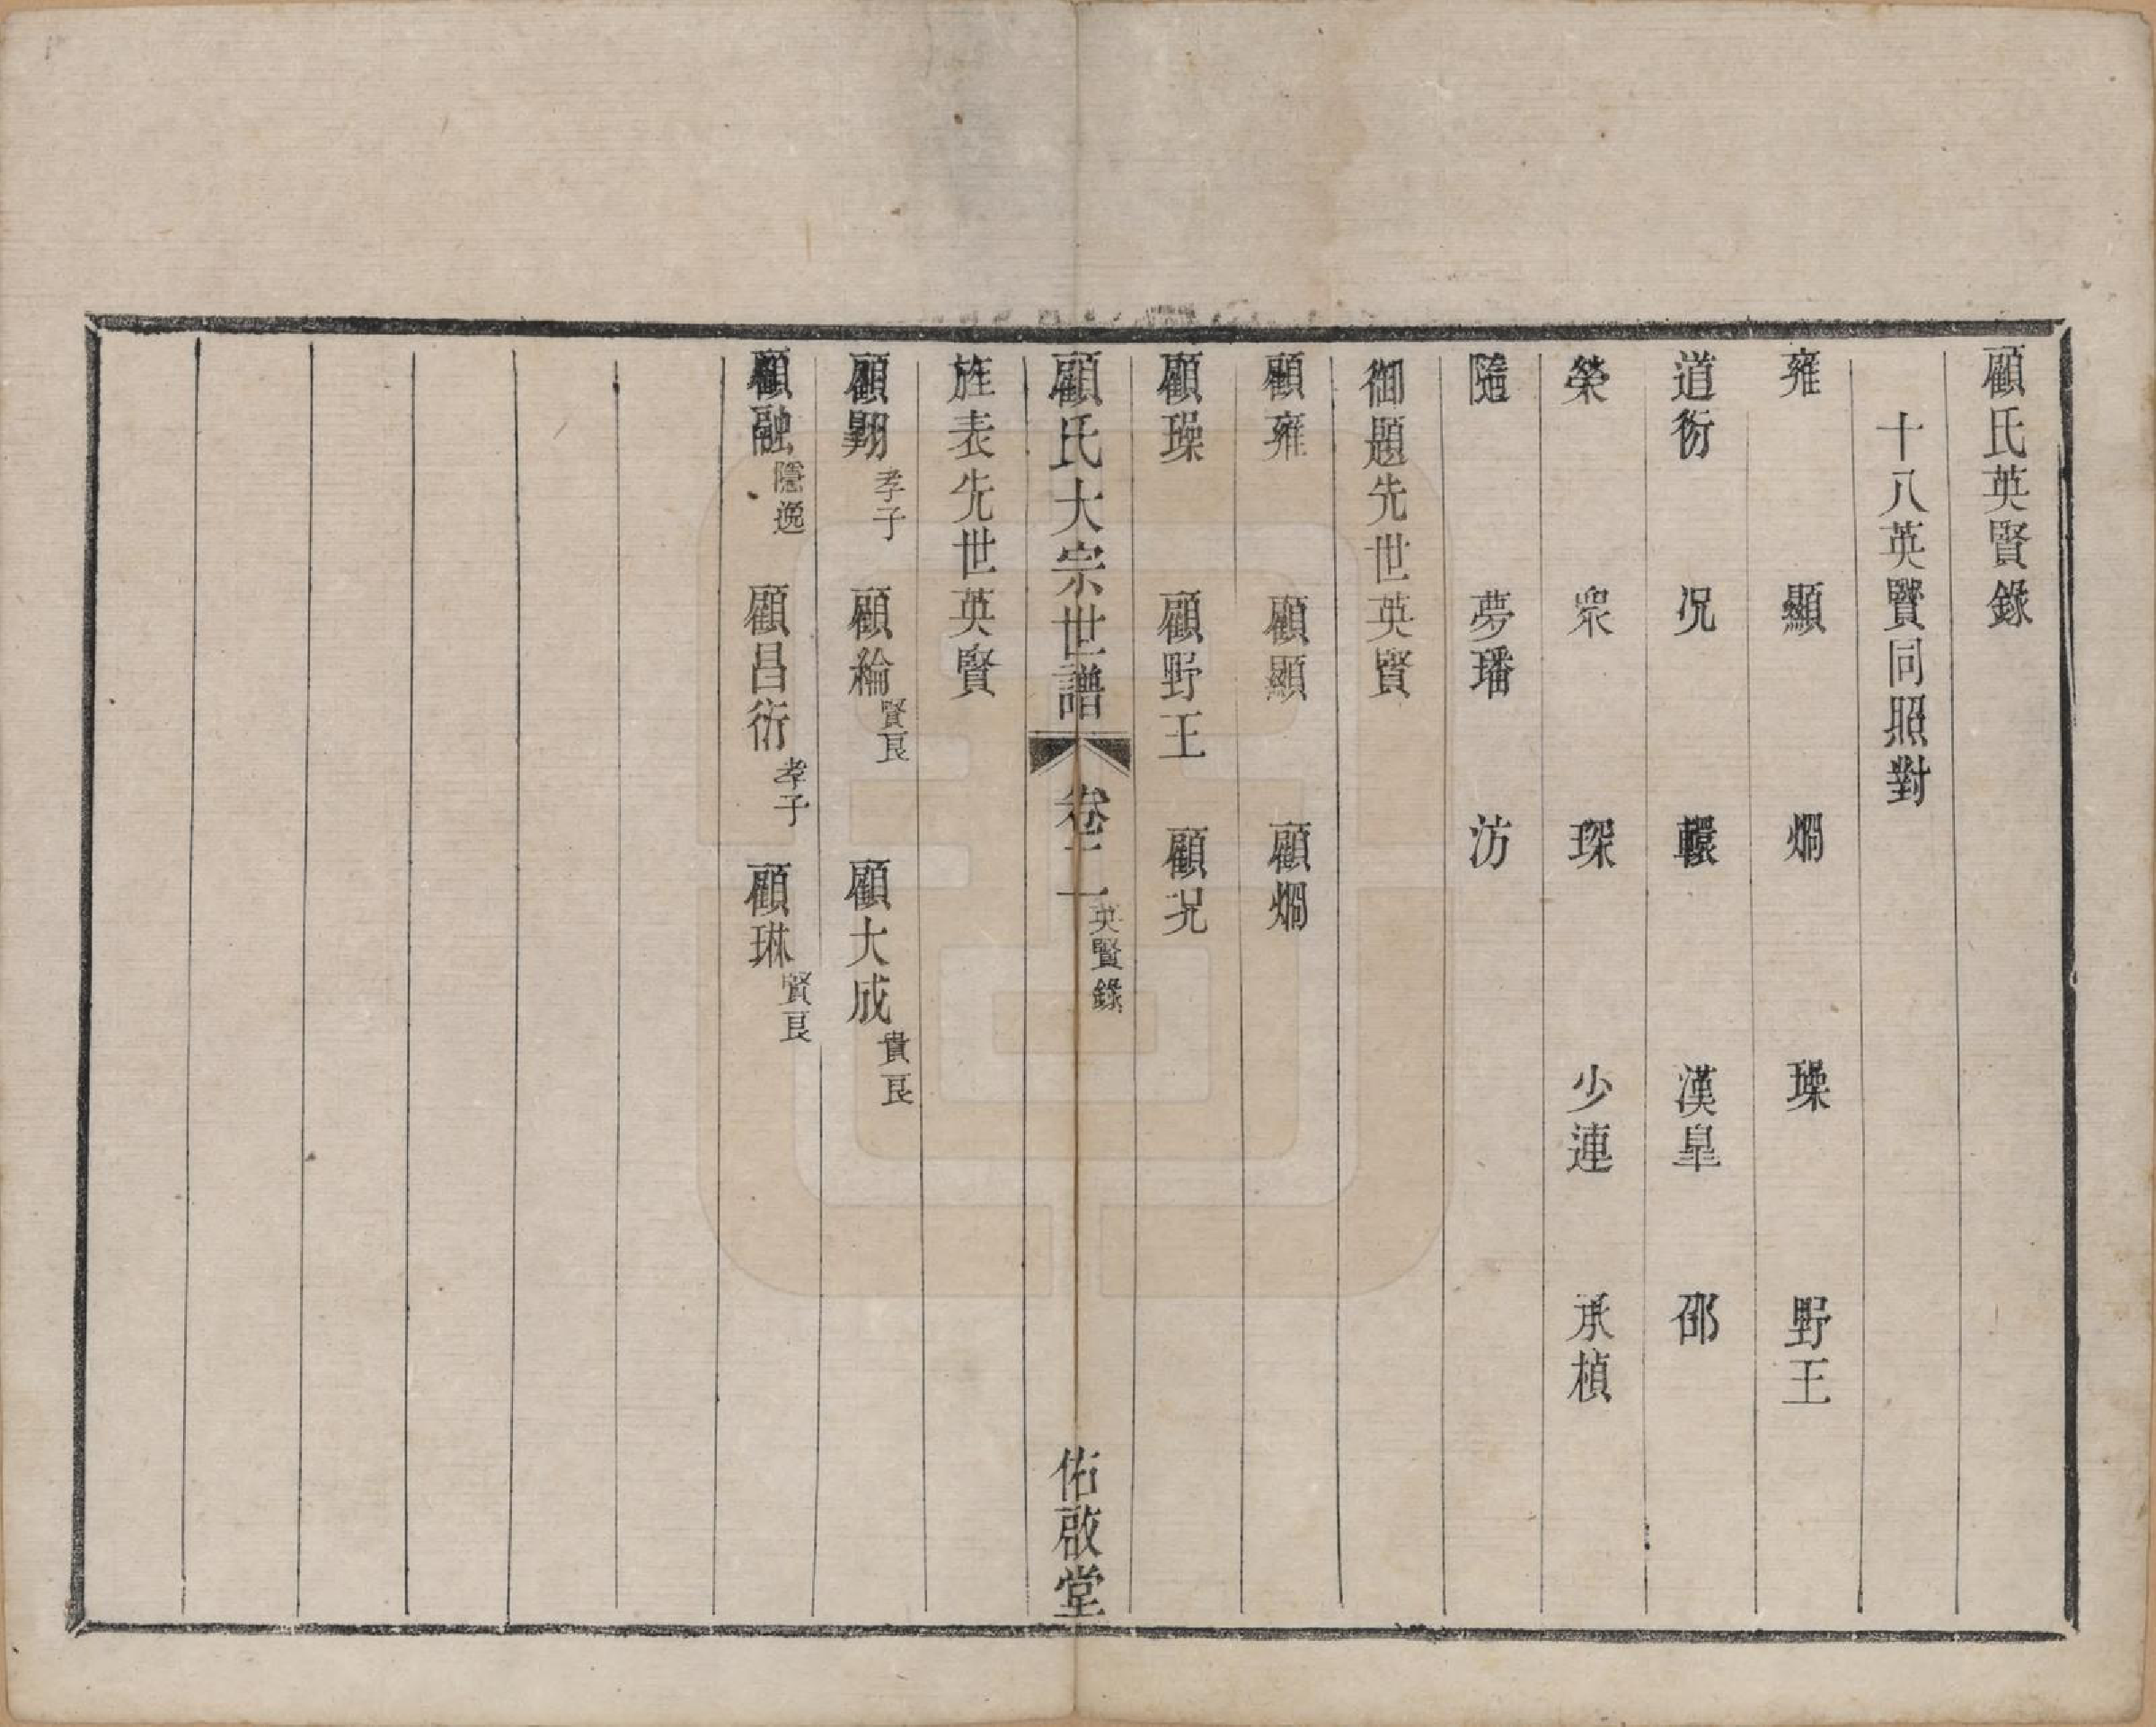 顧氏英賢錄
十八英賢同照對
雍 顯 燗 璪 野王
道衒 况 轘 漢臯 邵
榮 衆 琛 少連 承楨
隨 夢璠 汸
御題先世英賢
顧雍 顧顯 顧燗
顧璪 顧野王 顧况
顧氏大宗世譜 卷二 一 英賢錄 佑啟堂
旌表先世英賢
顧翾孝子 顧綸賢良 顧大成賁良
顧融隱逸 顧昌衒孝子 顧琳賢良